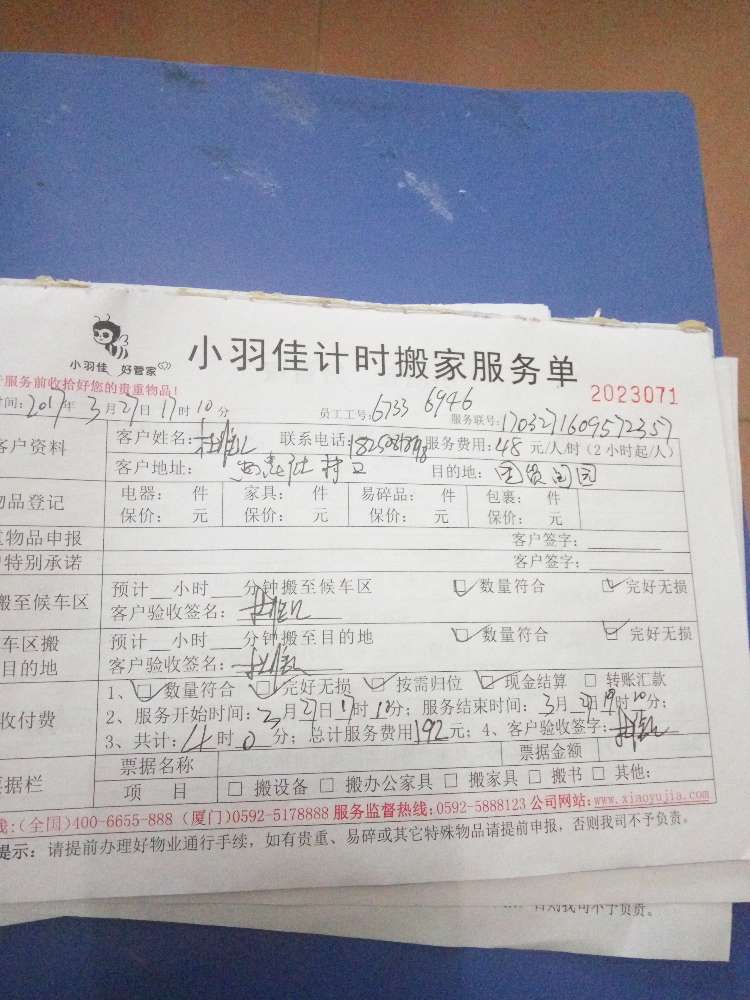 小羽佳 好管家
小羽佳计时搬家服务单
2023071
服务前收拾好您的贵重物品!
时间:2017年3月27日17时10分 员工工号:6733 6946 服务联号:1703271609572357
客户资料 客户姓名: 联系电话: 服务费用:48元/人/时(2小时起/人)
客户地址: 目的地:
物品登记 电器: 件 家具: 件 易碎品: 件 包裹: 件
保价: 元 保价: 元 保价: 元 保价: 元
物品申报 客户签字:
特别承诺 客户签字:
搬至候车区 预计__小时___分钟搬至候车区 数量符合 完好无损
客户验收签名:
车区搬 预计__小时___分钟搬至目的地 数量符合 完好无损
目的地 客户验收签名:
1、 数量符合 完好无损 按需归位 现金结算 转账汇款
收付费 2、服务开始时间:3月27日17时10分;服务结束时间:3月27日19时10分;
3、共计:4时0分;总计服务费用192元;4、客户验收签字:
票据名称 票据金额
据栏 项 目 搬设备 搬办公家具 搬家具 搬书 其他:
线:(全国)400-6655-888 (厦门)0592-5178888 服务监督热线:0592-5888123 公司网站:www.xiaoyujia.com
提示:请提前办理好物业通行手续,如有贵重、易碎或其它特殊物品请提前申报,否则我司不予负责。
否则我司不予负责。